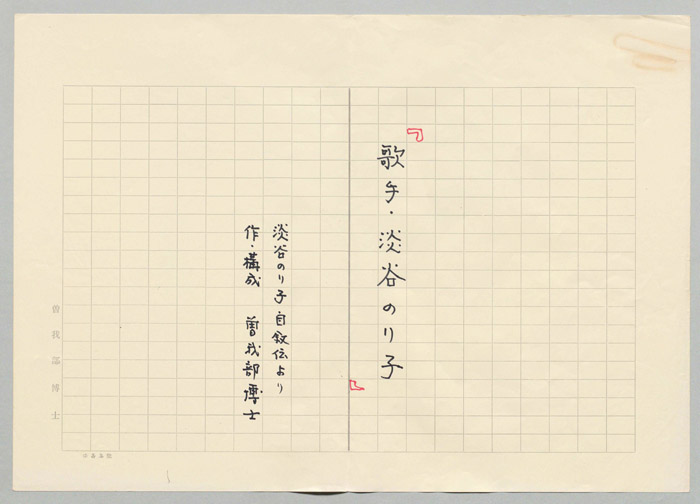 『歌手・淡谷のり子』
淡谷のり子自叙伝より
作・構成　曽我部博士
曽我部博士